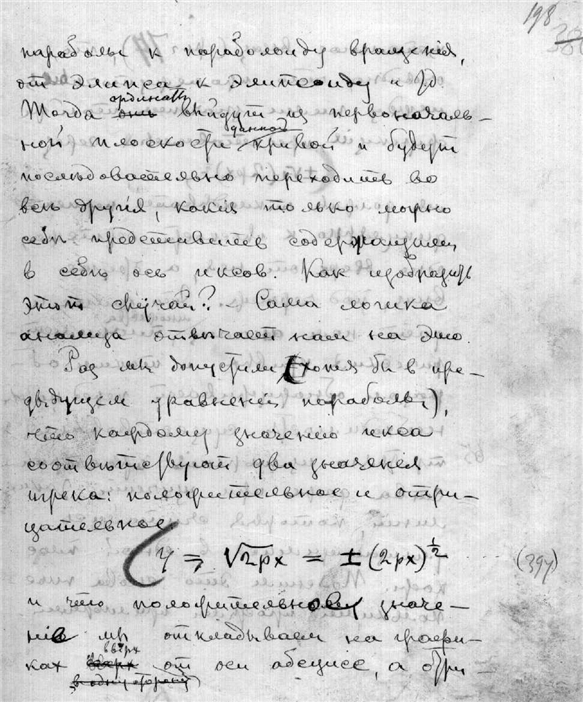 198
параболы к параболоиду вращенія,
от элипса к элипсоиду и др.
ординаты
Тогда они выйдут из первоначаль-
данной
ной плоскости кривой и будут
последовательно переходить во
всѣ другія, какія только можно
себѣ представить содержащими
в себѣ ось иксов. Как изобразить
этот случай? Сама логика
анализа отвѣчает нам на это.
Раз мы допустили (хотя бы в пре-
дыдущем уравненіи параболы),
что каждому значенію икса
соотвѣтствуют два значенія
игрека: положительное и отри-
цательное
y = √2px = ± (2px)^½ (394)
и что положительное значе-
ніе мы откладываем на графи-
вверх
ках вверх от оси абсцисс, а отри-
в одну сторону